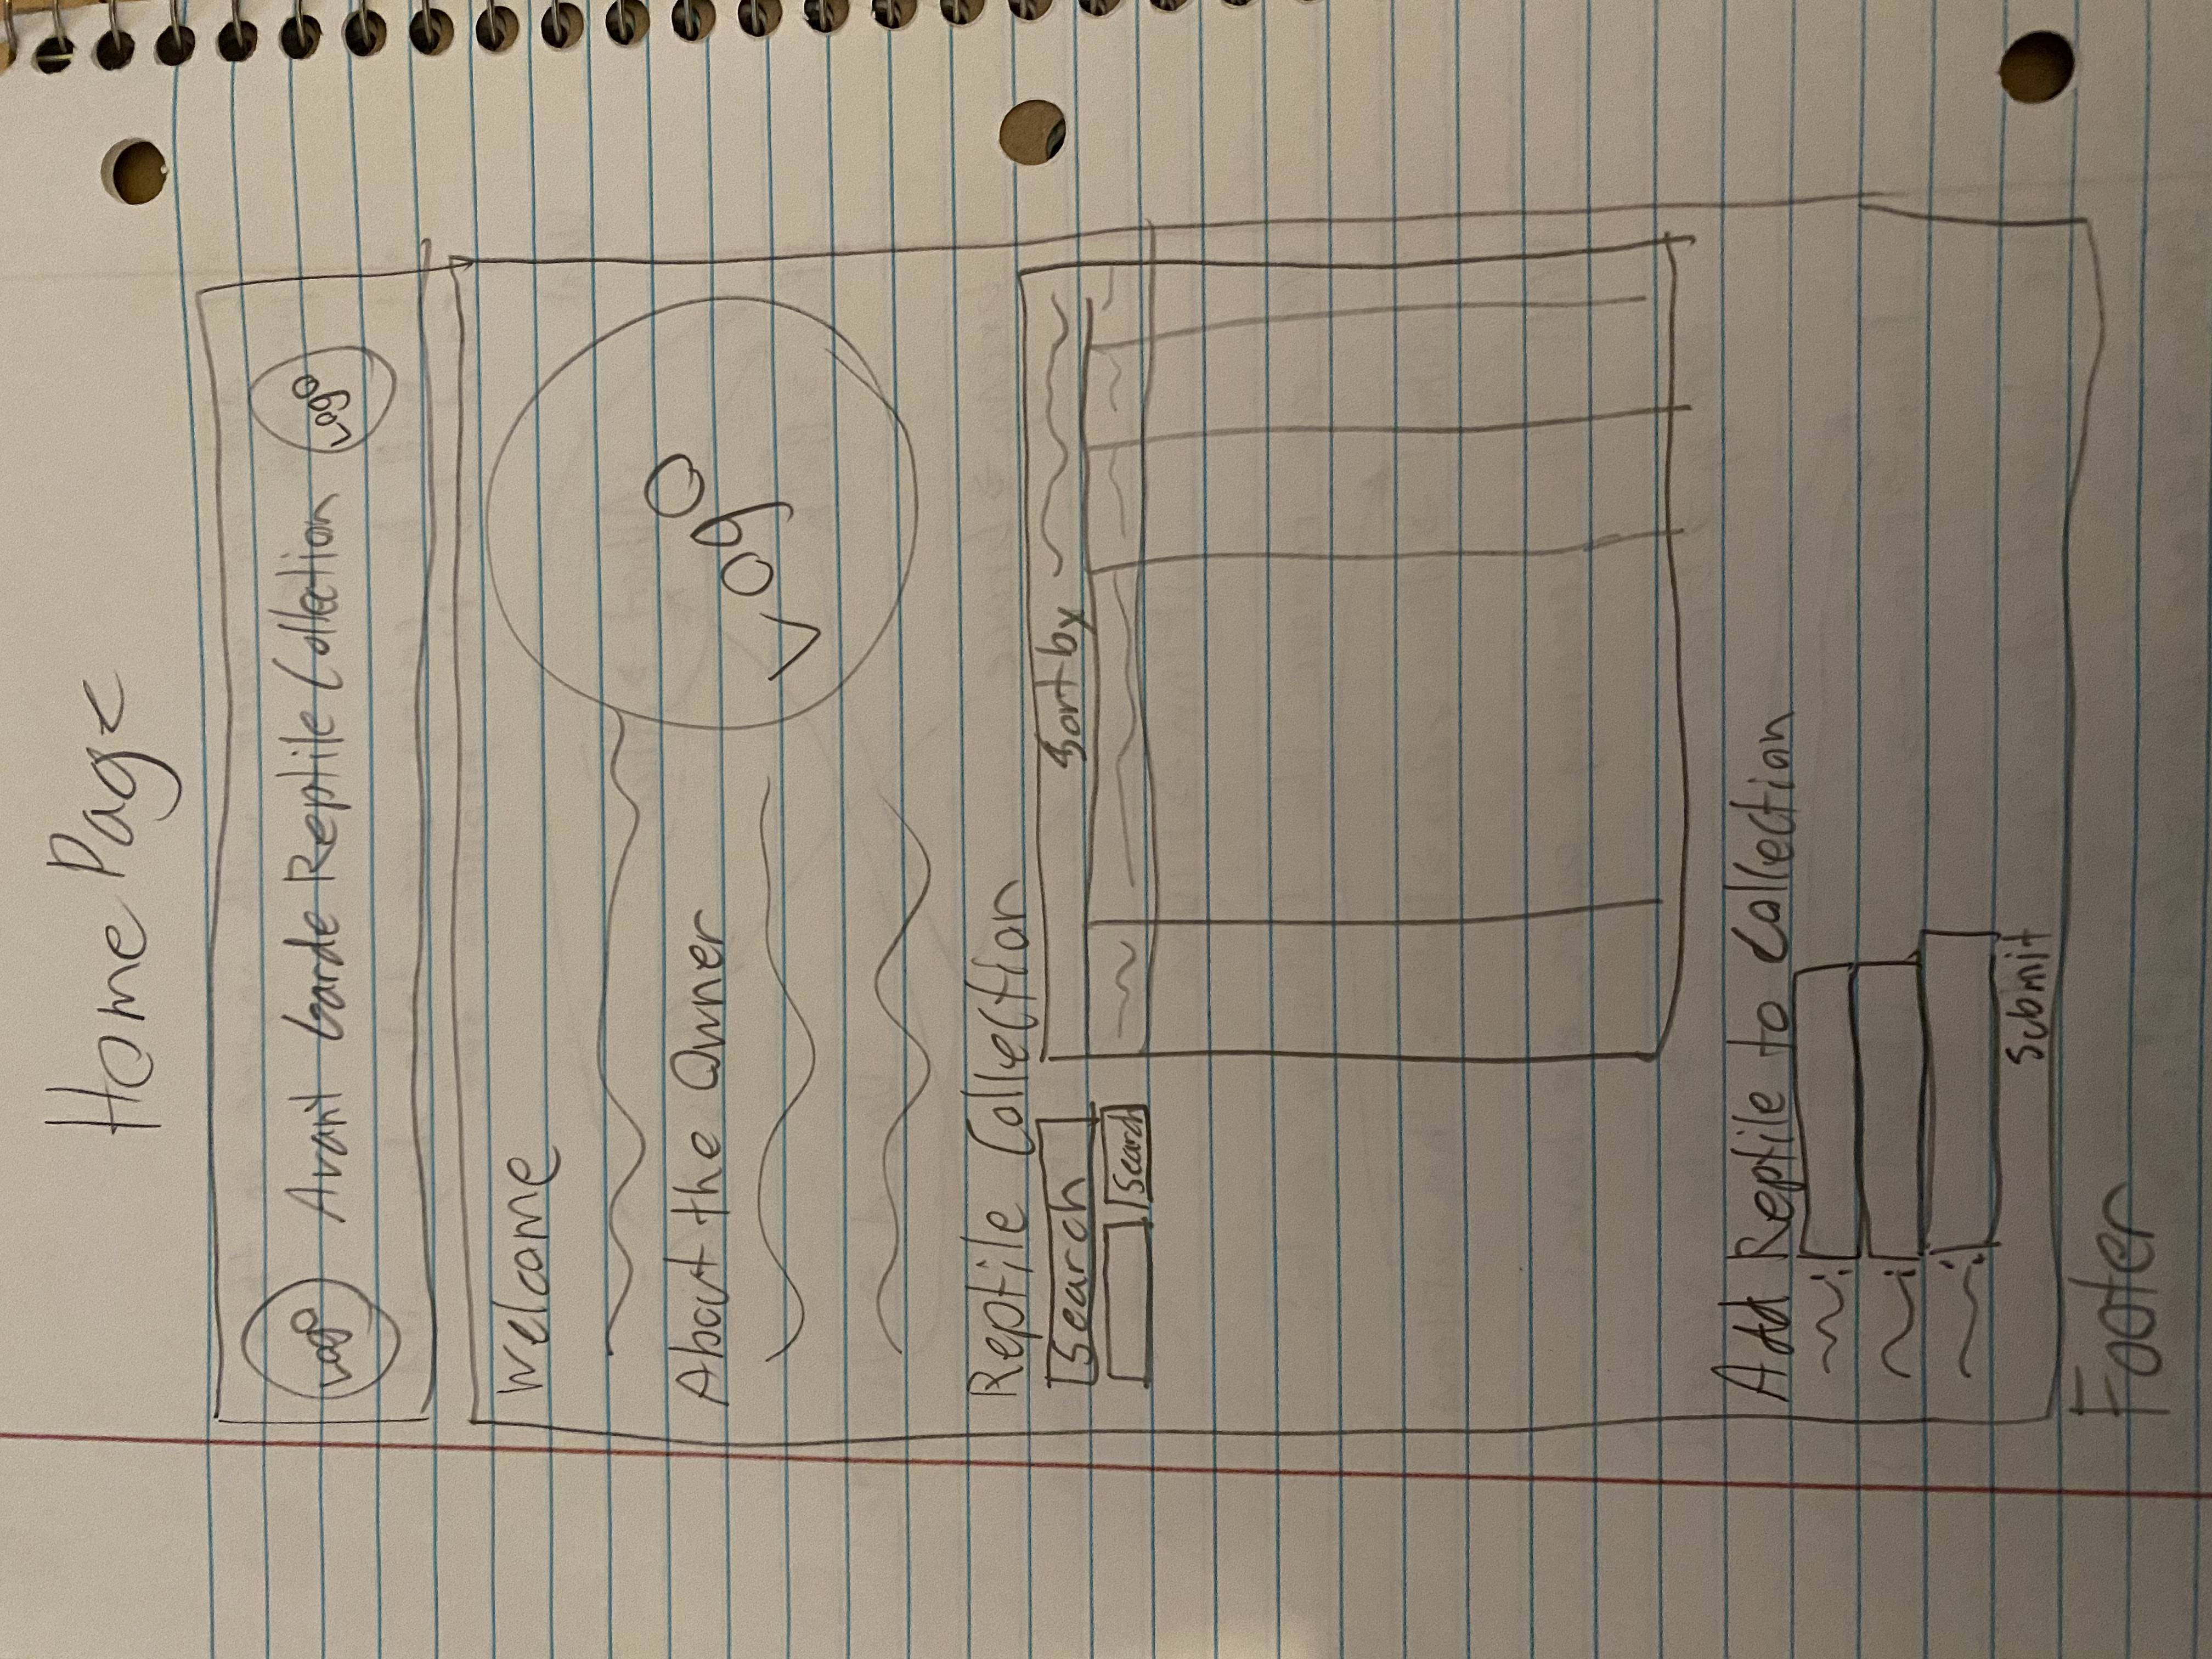 Home Page
Logo Avant Garde Reptile Collection Logo
Welcome
About the Owner
Logo
Reptile Collection
Search
Sort by
Search
Add Reptile to Collection
:
:
:
Submit
Footer